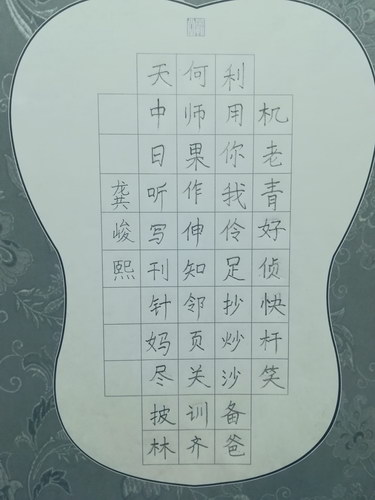 机老青好侦快杆笑
利用你我伶足抄炒沙备爸
何师果作伸知邻页关训齐
天中日听写刊针妈尽披林
龚峻熙